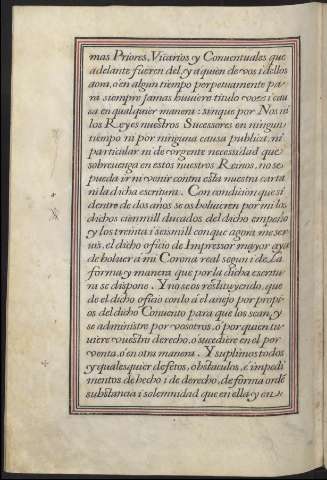 mas Priores, Vicarios, y Conuentuales que
adelante fueren del, y a quien de vos i dellos
aora, ò en algun tiempo perpetuamente pa-
ra siempre jamas huuiere titulo voz i cau
sa en qualquier manera: sin que por Nos ni
los Reyes nuestros Sucessores en ningun
tiempo ni por ninguna causa publica, ni
particular ni de vrgente necessidad que
sobreuenga en estos nuestros Reinos, no se
pueda ir ni venir contra esta nuestra carta
ni la dicha escritura. Con condicion que si
dentro de dos años se os boluieren por mi los
dichos cien mill ducados del dicho empeño
y los treinta i seis mill con que agora me ser
uis, el dicho oficio de Impressor mayor aya
de boluer a mi Corona real segun i de la
forma y manera que por la dicha escritu
ra se dispone. Y no se os restituyendo, que
de el dicho oficio con lo a el anejo por propi
os del dicho Conuento para que los sean, y
se administre por vosotros, ò por quien tu
uiere vuestro derecho, ò sucediere en el por
venta, ò en otra manera. Y suplimos todos
y quales quier defetos, obstaculos, è impedi
mentos de hecho i de derecho, de forma ordẽ
substancia i solemnidad que en ella, y en